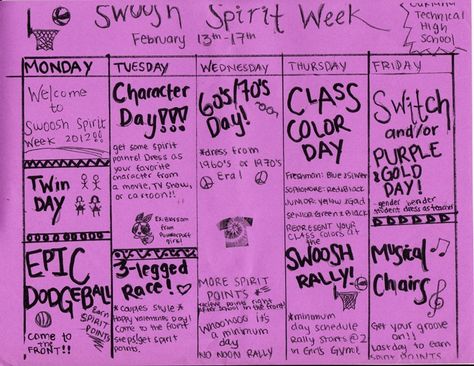 Swoosh Spirit Week
February 13th-17th
Technical
High
School
MONDAY
Welcome
to
Swoosh Spirit
Week 2012!!
TWIN
DAY
EPIC
DODGEBALL
Earn
SPIRIT
POINTS
come to
the
FRONT!!
TUESDAY
Character
Day!!!
get some spirit
points! Dress as
your favorite
character from
a movie, TV show,
or cartoon!!
Ex: Blossom
from
Powerpuff
girls!
3-legged
Race!
*couples style*
Happy Valentines Day!
Come to the front
steps! get spirit
points.
WEDNESDAY
60's/70's
Day!
*dress from
1960's or 1970's
Era!
MORE SPIRIT
POINTS
points right
after school in the front!
WHOOHOO it's
a minimum
day
NO NOON RALLY
THURSDAY
CLASS
COLOR
DAY
Freshmen: Blue & Silver
SOPHOMORE: Red & Black
JUNIOR: Yellow & Gold
Senior: Green & Black
REPRESENT YOUR
CLASS COLORS at
the
SWOOSH
RALLY!
*minimum
day schedule
Rally starts @ 2
in Girls Gym
FRIDAY
Switch
and/or
PURPLE
& GOLD
DAY!
-gender bender
student dress as teacher
Musical
Chairs
Get your groove
on!!
last day to earn
SPIRIT POINTS